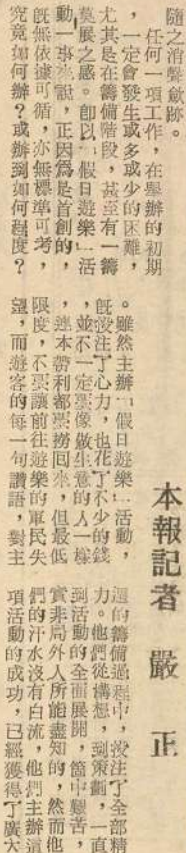 隨之消聲斂跡。
任何一項工作，在舉辦的初期
，一定會發生或多或少的困難，
尤其是在籌備階段，甚至有一籌
莫展之感。卽以「假日遊樂」活
動一事來說，正因爲是首創的，
旣無依據可循，亦無標準可考，
究竟如何辦？或辦到如何程度？
。雖然主辦「假日遊樂」活動，
旣投注了心力，也花了不少的錢
，並不一定要像做生意的人一樣
，連本帶利都要撈回來，但最低
限度，不要讓前往遊樂的軍民失
望，而遊客的每一句讚語，對主
本報記者 嚴 正
的籌備過程中，投注了全部精
力。他們從構想，到策劃，一直
到活動的全面展開，箇中艱苦，
實非局外人所能盡知的，然而他
們的汗水沒有白流，他們主辦這
項活動的成功，已經獲得了廣大